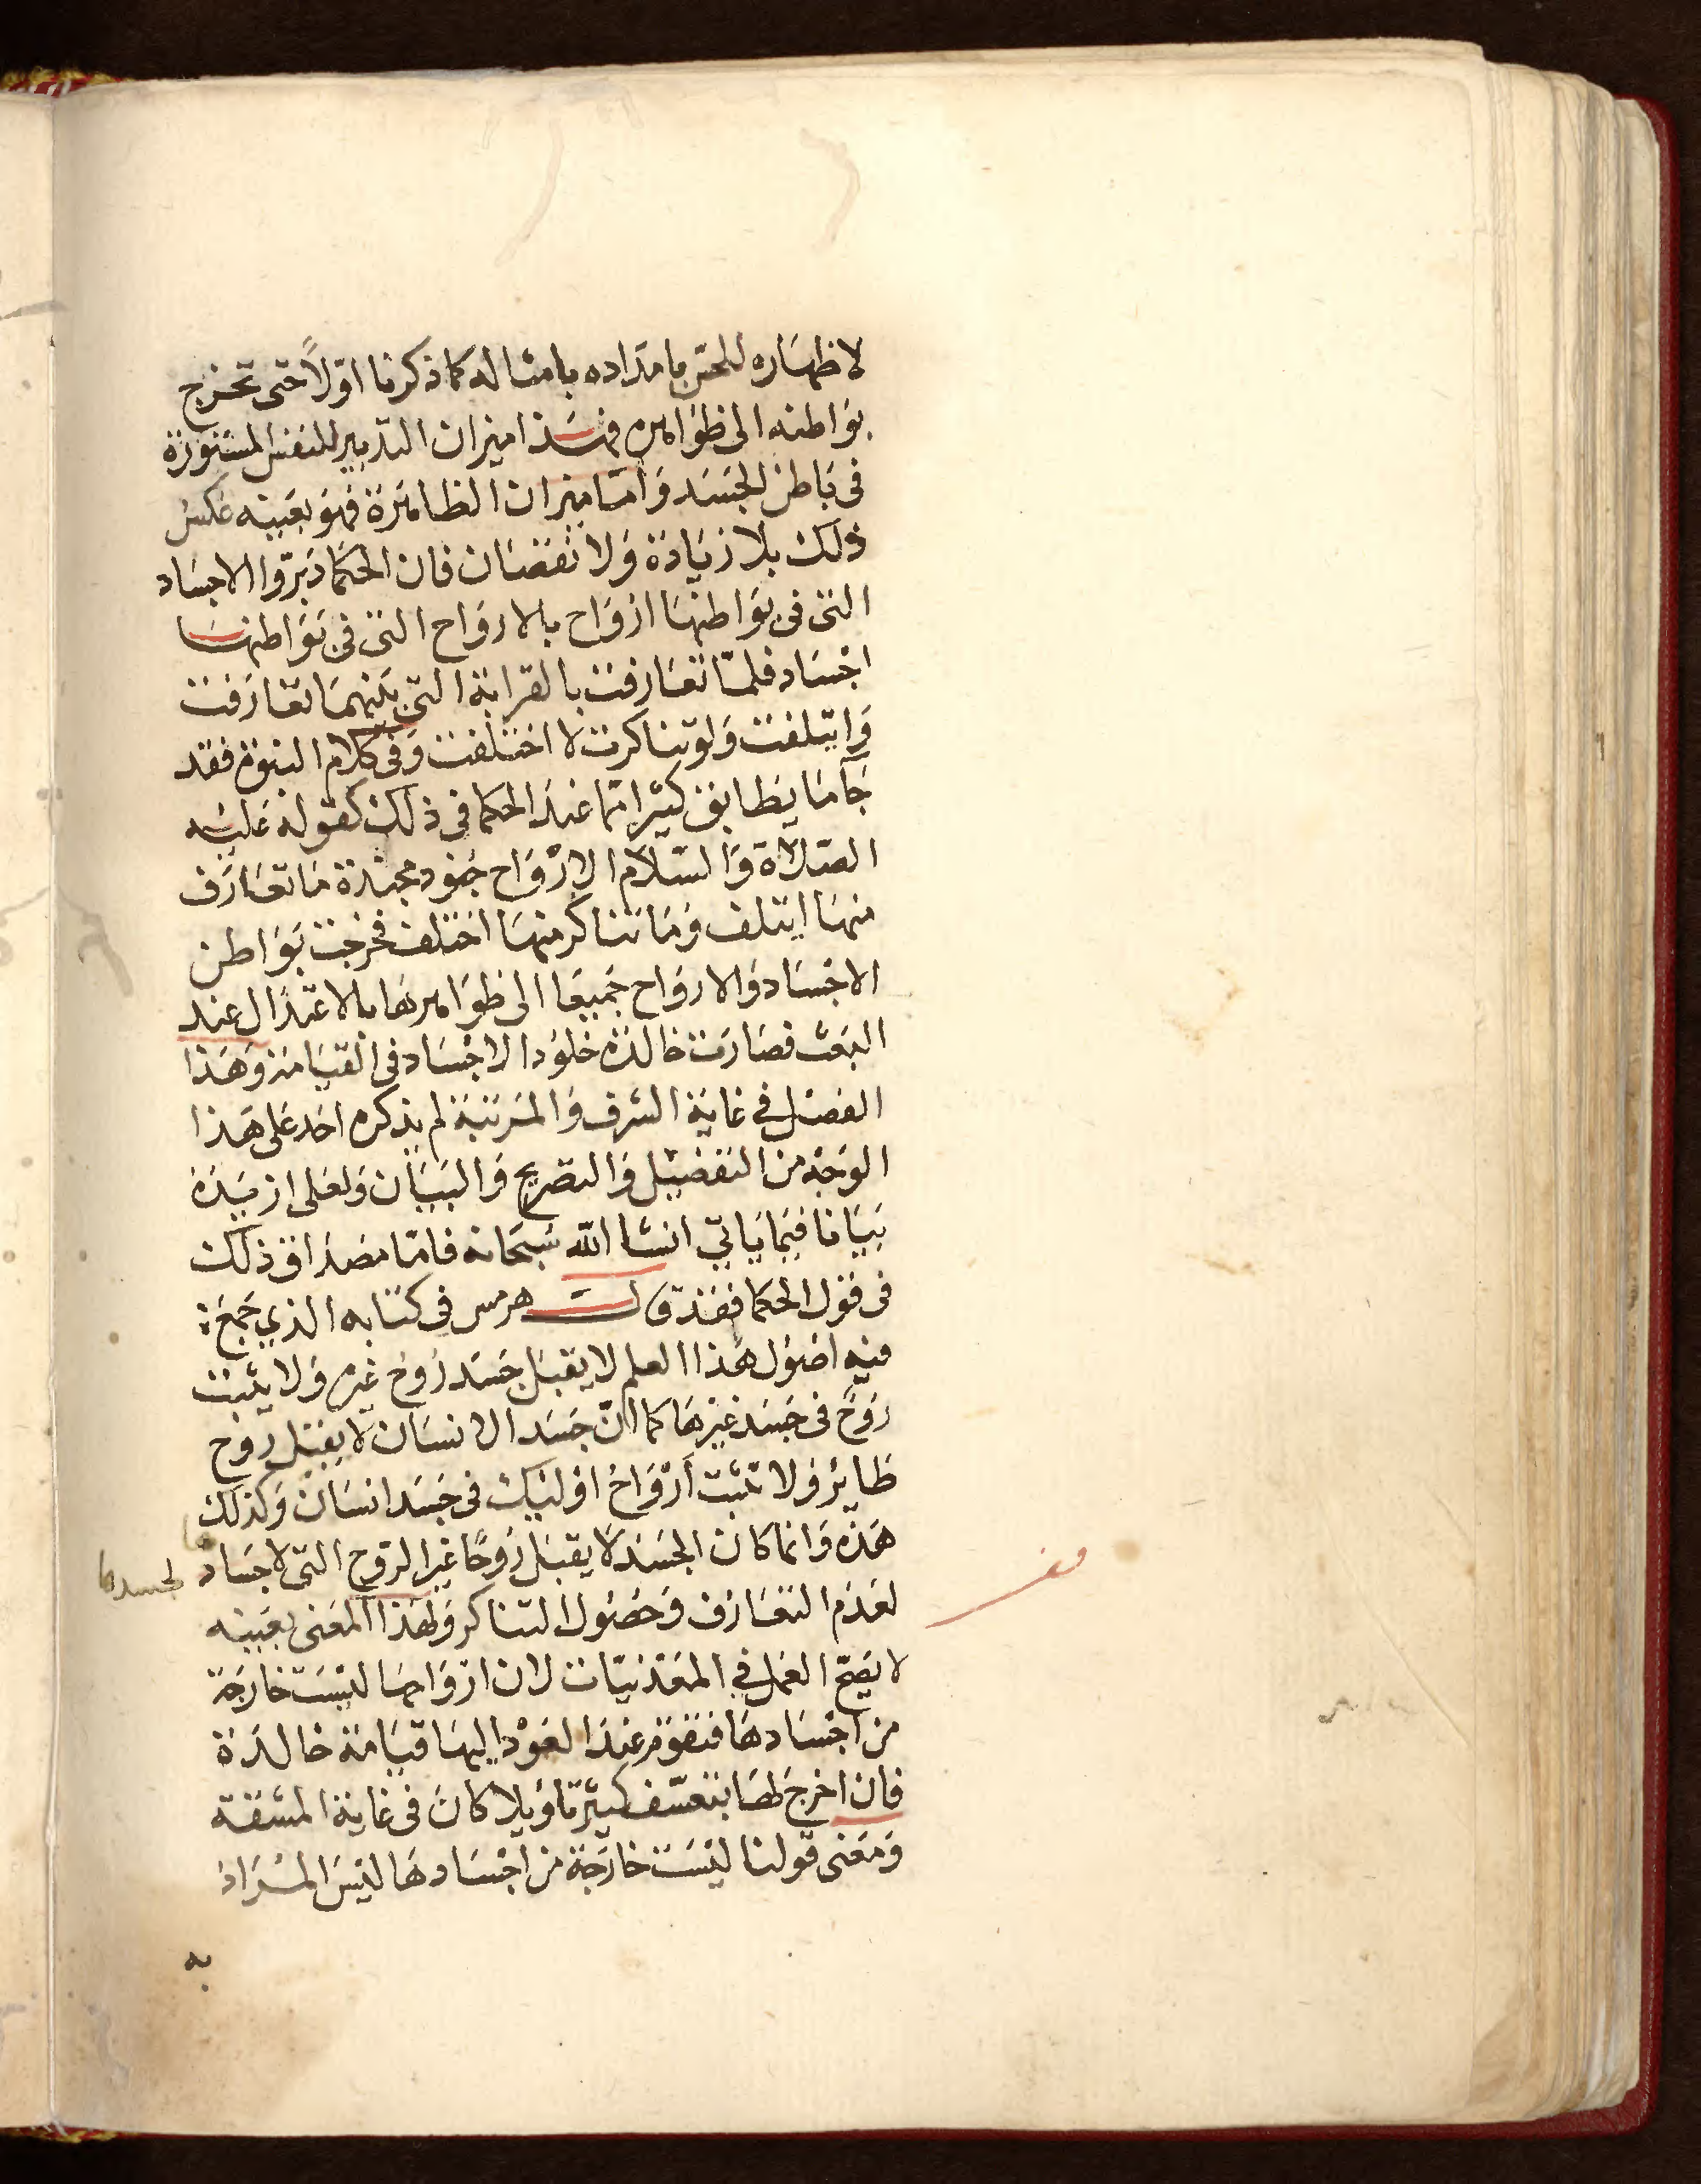 لاظهاره للحس بامداده بامثاله كما ذكرنا اولاً حتى تخرج
بواطنه الى ظواهره فهذا ميزان التدبير للنفس المستورة
فى باطن الجسد وَامّا ميزان الظاهرة فهو بعينه عكس
ذلك بلا زيادة وَلا نقصَان فان الحكما دَبّروا الاجسَاد
التى فى بوَاطنهَا ارْوَاح بالاروَاح التى فى بوَاطنهَا
اجْسَاد فلمّا تعَارفت بالقرابة التى بَينهمَا تعَارَفت
وَايتلفت وَلو تناكرت لاختلفت وَفى كلام النبوة فقد
جَآ مَا يطابق كثيرا مما عند الحكما فى ذلك كقوله عَليْه
الصّلاة وَالسّلام الارْوَاح جنود مجندة مَا تعَارَف
منهَا ايتلف وَمَا تناكر منهَا اختلف فخرجت بوَاطن
الاجْسَاد وَالاروَاح جَميعًا الى ظوَاهرهَا بالاعتدال عند
البعث فصَارت خالدة خلوُد الاجْسَاد فى القيَامة وَهَذا
الفصْل في غاية الشرف وَالمرتبة لم يذكره احَد عَلى هَذا
الوَجْه من التفصْيل وَالتصريح وَالبيَان وَلعَلى ازيدَهُ
بَيَانا فيما يَاتي انشا الله سُبحَانه فامّا مصْداق ذلك
فى قول الحكما فقد قال هرمس فى كتابه الذي جَمعَ
فيه اصُول هَذا العلم لا يقبَل جَسَد رُوح غيره وَلا يثبت
رَوح فى جسَد غيرهَا كما انّ جَسَد الانسَان لا يقبَل روح
طاير وَلا تثبت اَرْوَاحُ اوليك فى جَسَد انسَان وَكذلك
هَذه وَانما كان الجسَد لا يقبَل رُوحًا غير الرّوح التى لاجسَاد لجسدها
لعَدم التعَارف وَحصُول التناكر وَلهذا المعنى بعَينه
لا يَصحّ العَمل في المعْدنيّات لان ارْوَاحهَا ليْسَت خارجَة
من اجْسَادهَا فتقوم عند العَوْد اليهَا قيَامة خالدَة
فان اخرجَ لهَا بتعسّف كثير تاوُيلا كانَ فى غاية المشقة
وَمَعنى قولنا ليْسَت خارجَة من اجْسَادهَا ليْسَ المرَاد
به